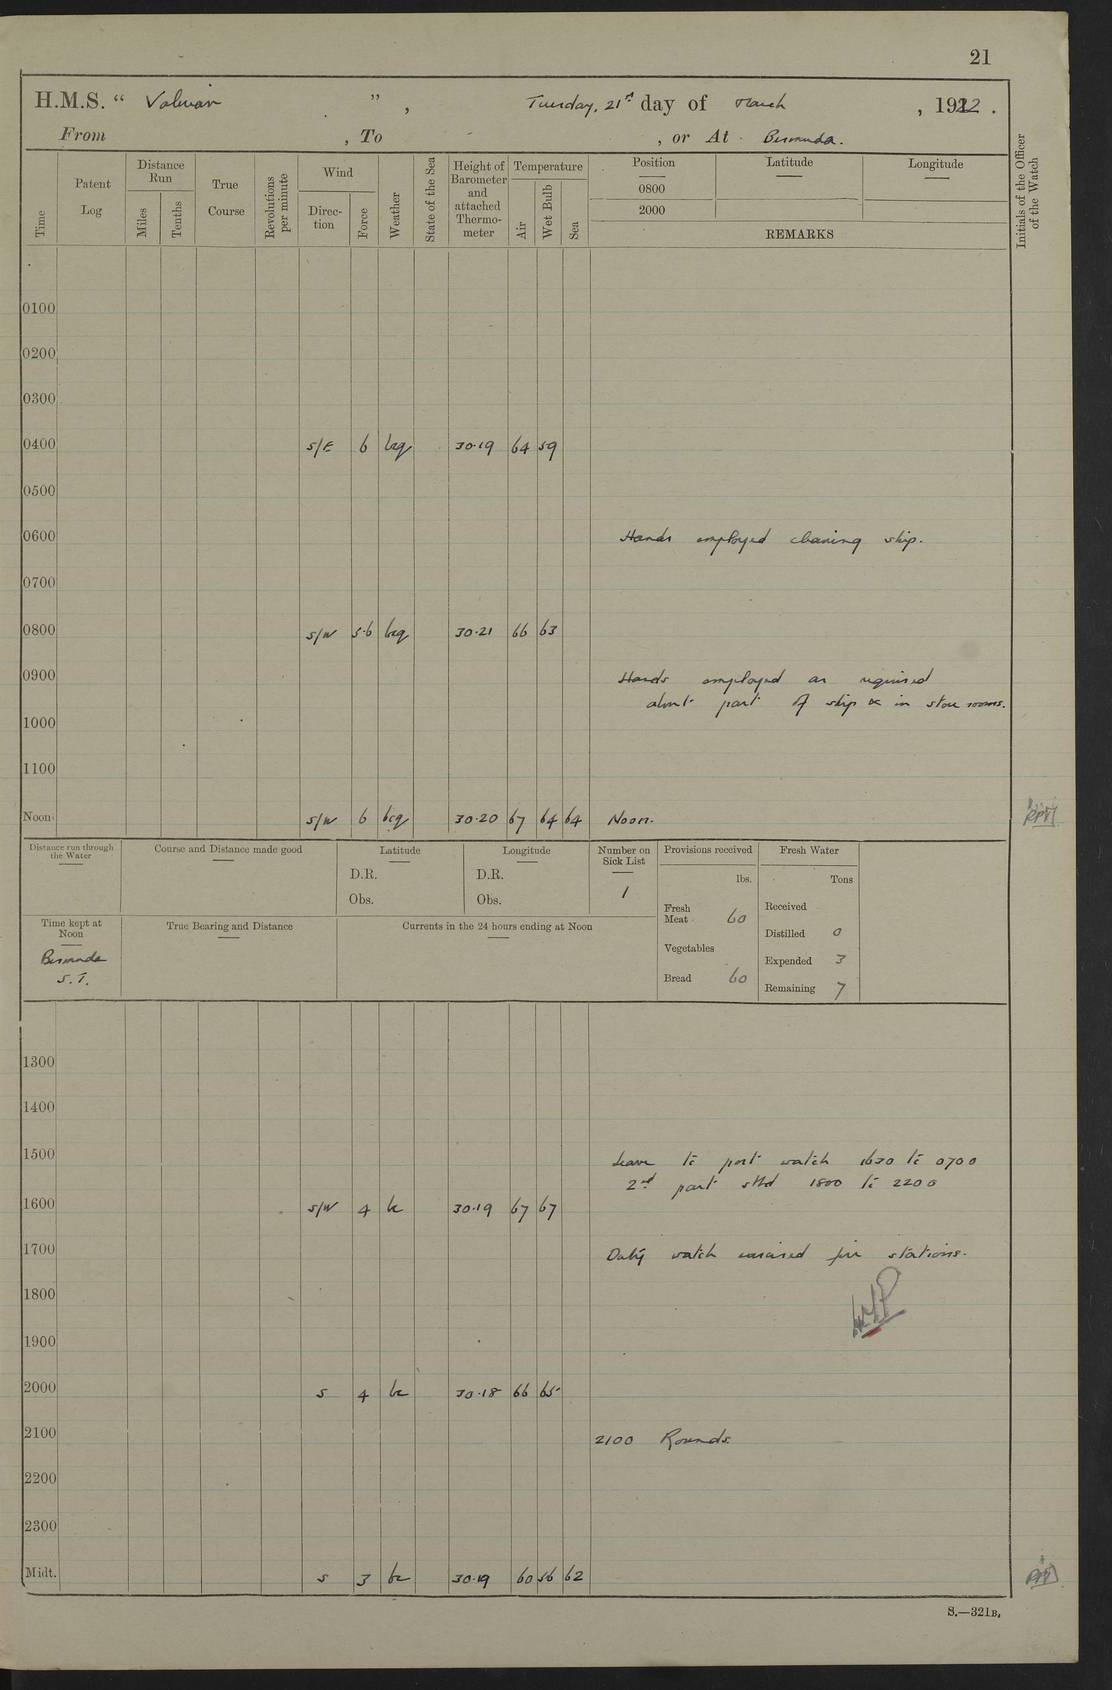 21
H.M.S. “ Valerian ”, Tuesday, 21st day of March , 1922.
From , To , or At Bermuda.
Time
Patent Log
Distance Run
Miles
Tenths
True Course
Revolutions per minute
Wind
Direction
Force
Weather
State of the Sea
Height of Barometer and attached Thermometer
Temperature
Air
Wet Bulb
Sea
Position
0800
2000
Latitude
Longitude
REMARKS
Initials of the Officer of the Watch
0100
0200
0300
0400 S/E 6 bcq 30.19 64 59
0500
0600 Hands employed cleaning ship.
0700
0800 S/W 5.6 bcq 30.21 66 63
0900 Hands employed as required
about part of ship & in store rooms.
1000
1100
Noon S/W 6 bcq 30.20 67 64 64 Noon.
Distance run through the Water
Course and Distance made good
Latitude
D.R.
Obs.
Longitude
D.R.
Obs.
Number on Sick List
1
Provisions received
lbs.
Fresh Meat 60
Vegetables
Bread 60
Fresh Water
Tons
Received
Distilled 0
Expended 3
Remaining 7
Time kept at Noon
Bermuda
S.T.
True Bearing and Distance
Currents in the 24 hours ending at Noon
1300
1400
1500 Leave to port watch 1630 to 0700
2nd part stbd 1800 to 2200
1600 S/W 4 bc 30.19 67 67
1700 Duty watch exercised fire stations.
1800
1900
2000 S 4 bc 30.18 66 65
2100 2100 Rounds.
2200
2300
Midt. S 3 bc 30.19 60 56 62
S.—321B.